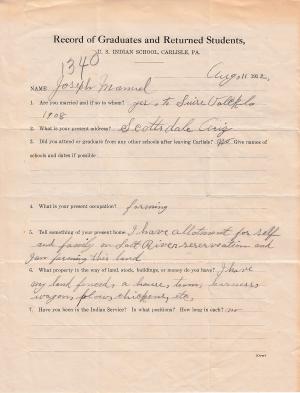 Record of Graduates and Returned Students,
U. S. INDIAN SCHOOL, CARLISLE, PA.
1340
Aug 11 1912.
NAME Joseph Manuel
1. Are you married and if so to whom? yes, to Susie
1908
2. What is your present address? Scottsdale Ariz
3. Did you attend or graduate from any other schools after leaving Carlisle? Give names
of schools and dates if possible
4. What is your present occupation? farming
5. Tell something of your present home I have allotment for self
and family on Salt River reservation and
I am farming this land
6. What property in the way of land, stock, buildings, or money do you have? I have
my land fenced, a house, team, harness
wagon, plows, chickens, etc.
7. Have you been in the Indian Service? In what positions? How long in each? no
(Over)